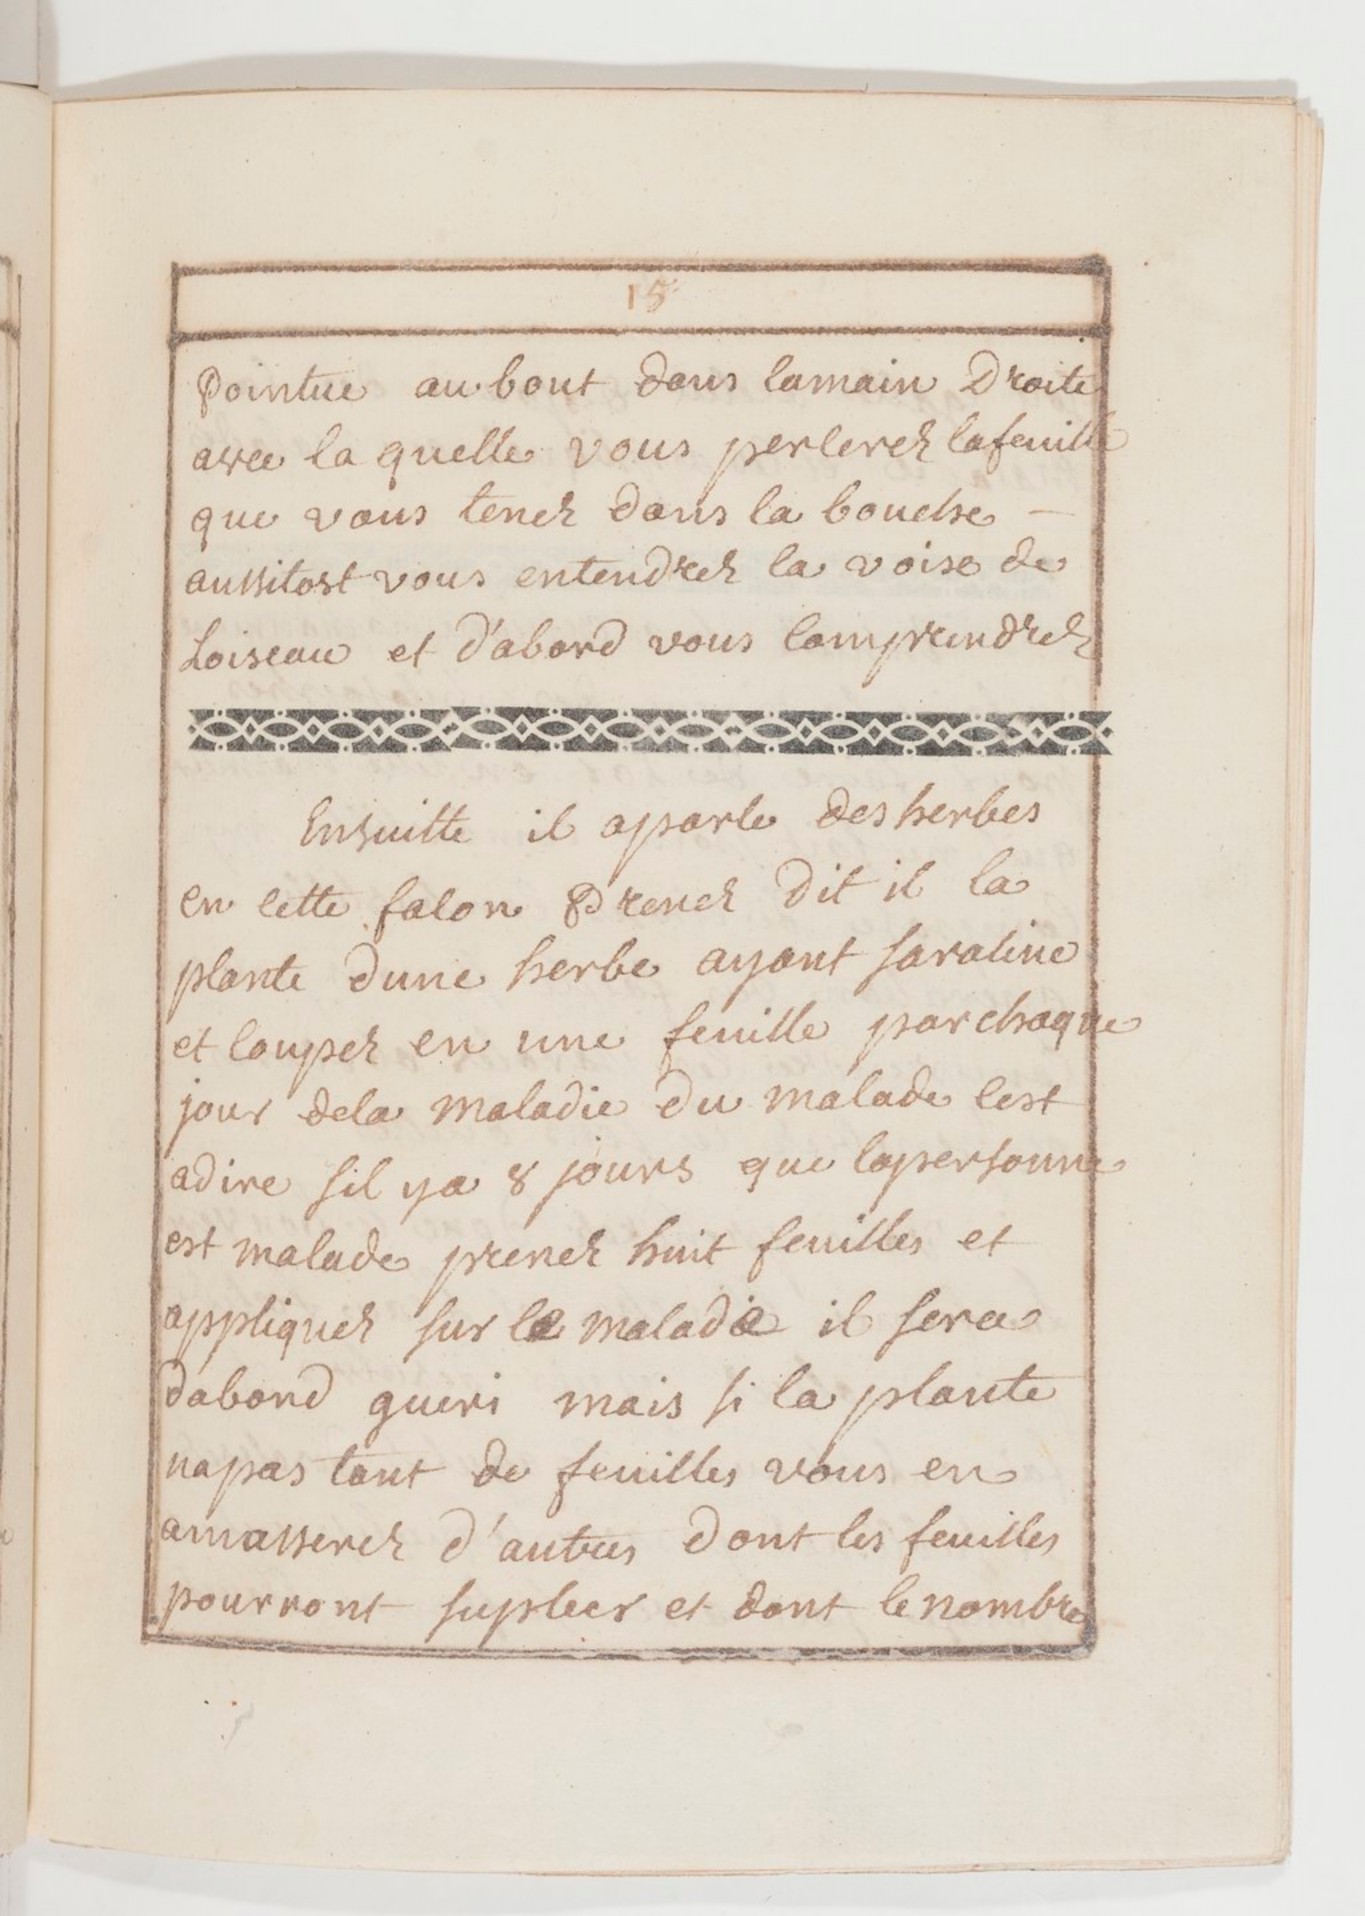 15
Pointue au bout dans lamain Droite
avec la quelle vous percerez lafeuille
que vous tenez dans la bouche —
aussitost vous entendrez la voise de
Loiseau et d'abord vous comprendrez
Ensuitte il aparle desherbes
en cette facon Prenez Dit il la
plante dune herbe ayant saracine
et coupez en une feuille parchaque
jour dela maladie Du malade cest
adire sil ya 8 jours que lapersonne
est malade prenez huit feuilles et
appliquez sur le maladie il sera
dabord gueri mais si la plante
napas tant de feuilles vous en
amasserez d'autres dont les feuilles
pourront supleer et dont lenombre